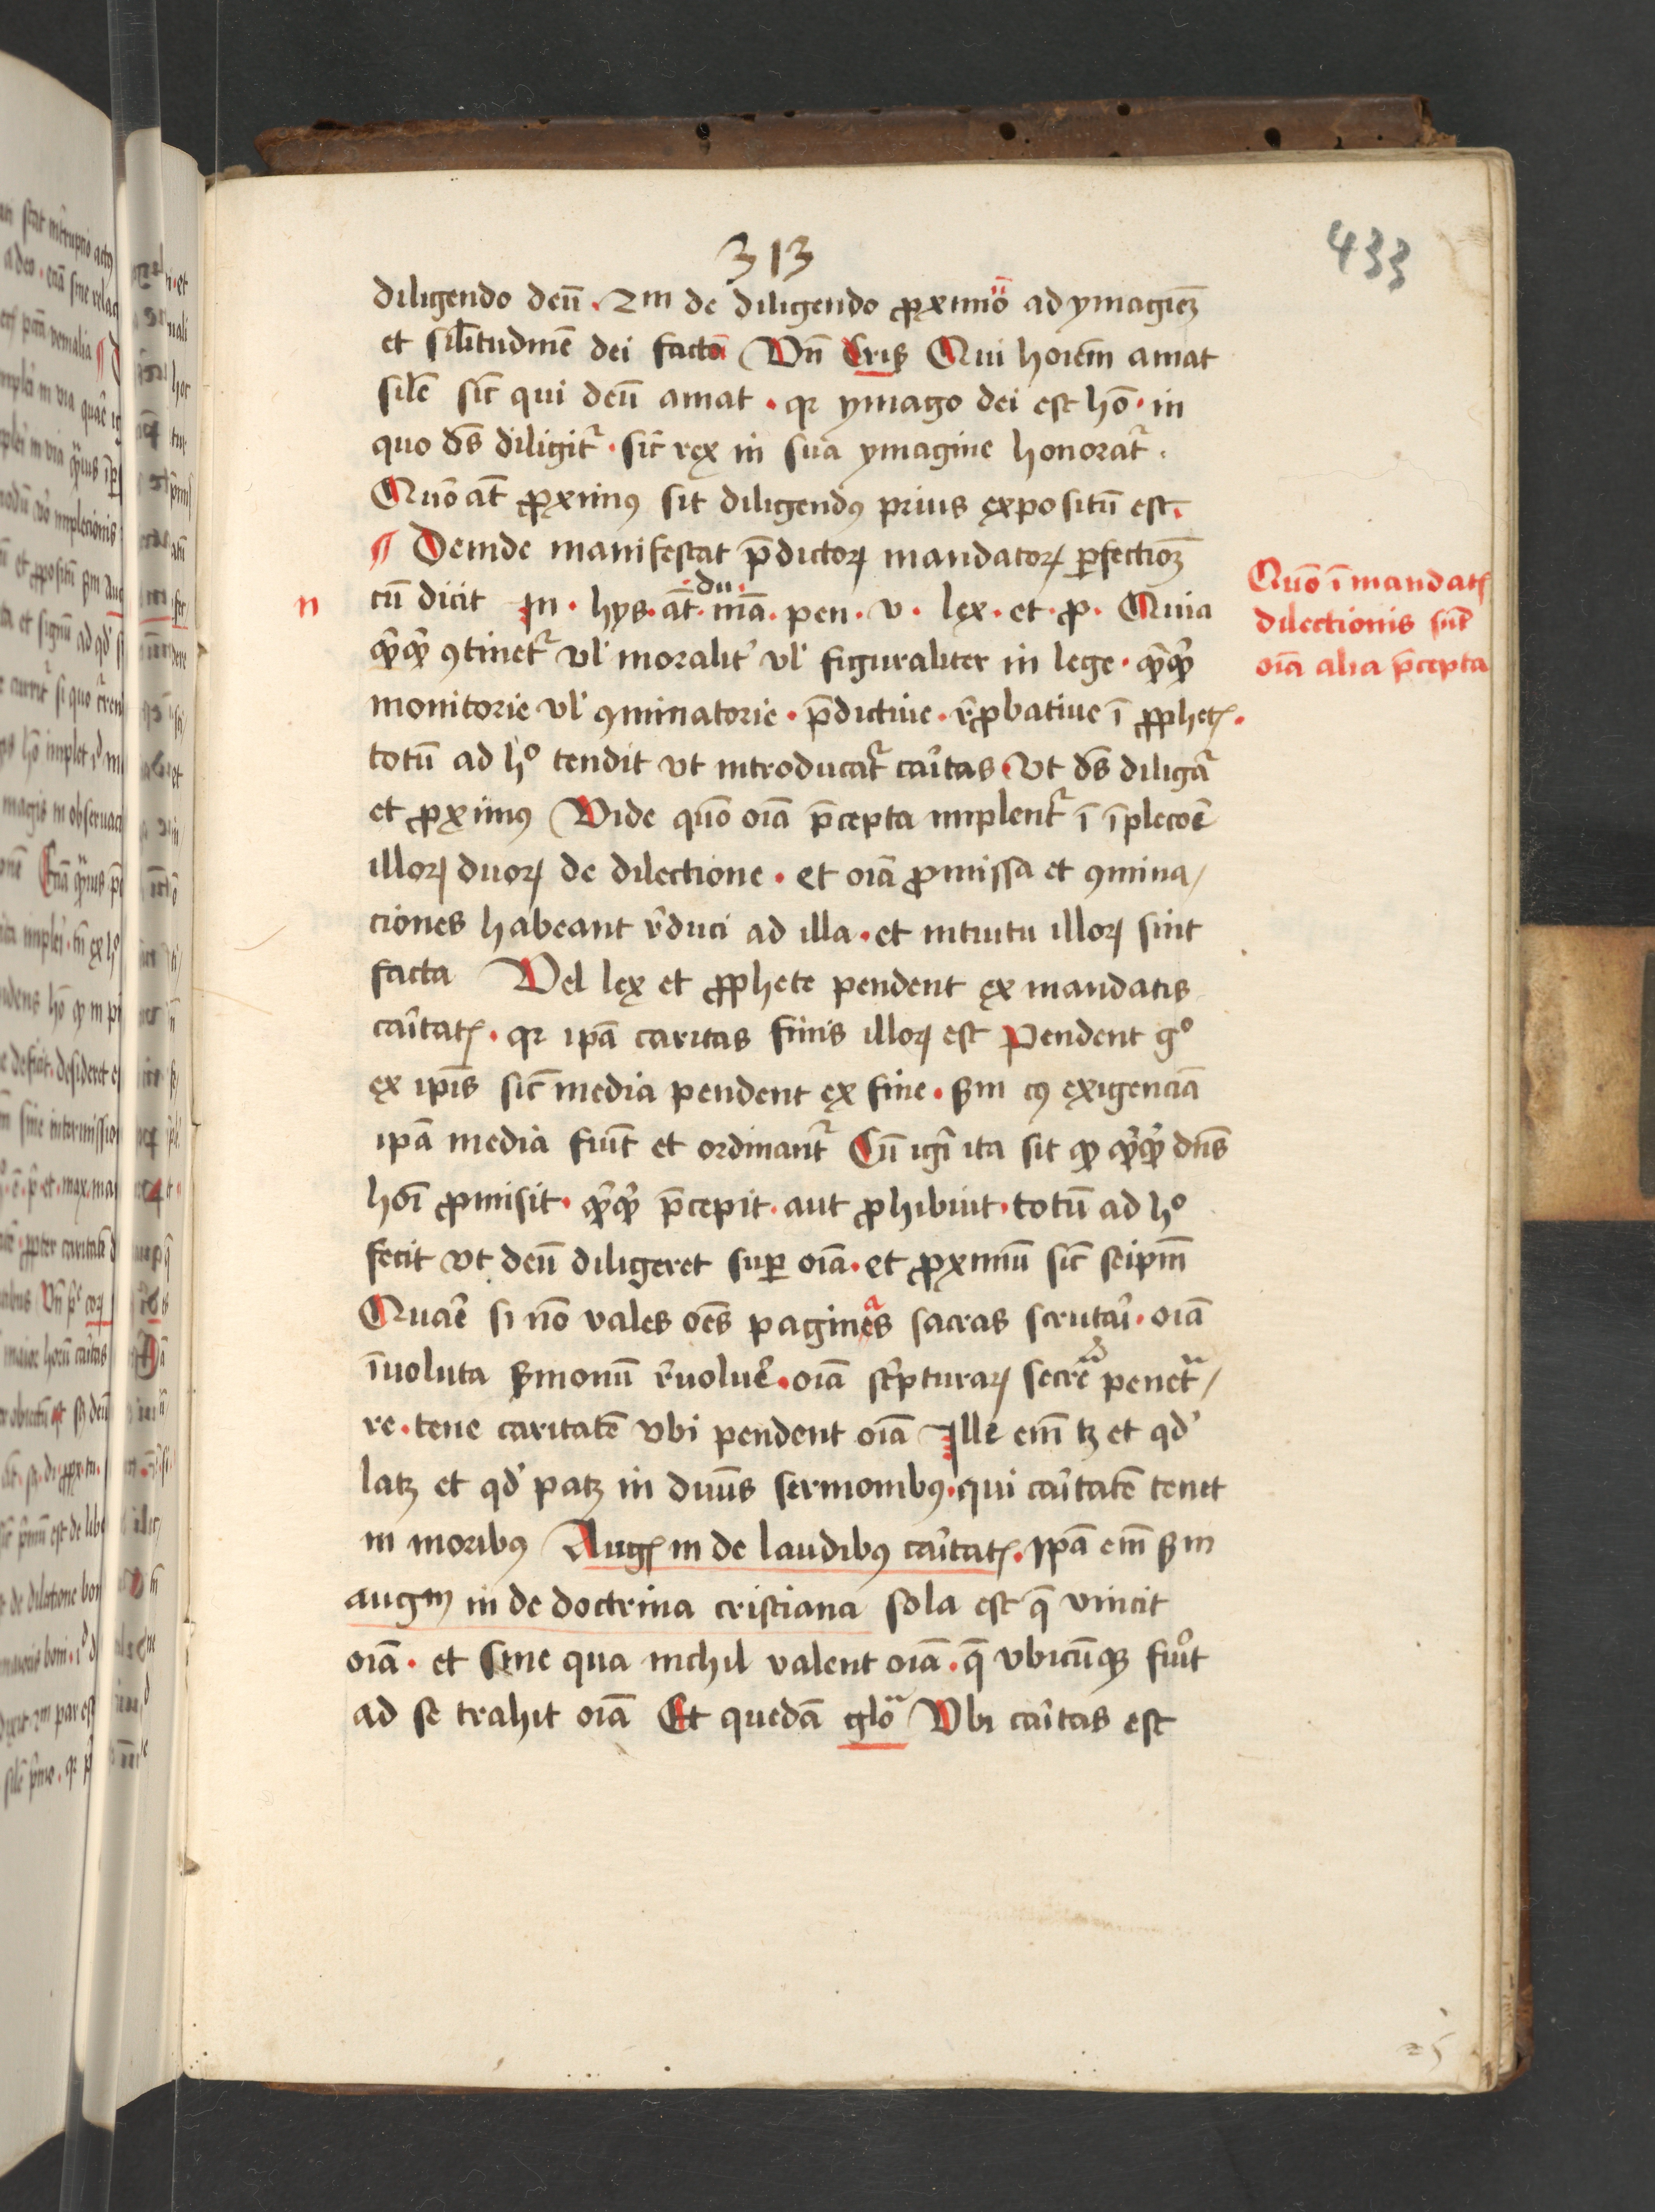 433
313
diligendo deū . 2m de diligendo ꝓximo ad ymagieꝫ
et silitudinē dei facto Vn̄ Cris Qui hoiem amat
silē sic̄ qui deū amat . qꝛ ymago dei est hō . in
quo ds̄ diligit᷑ . sic̄ rex in sua ymagine honorat᷑ .
Quō at̄ ꝓximꝰ sit diligendꝰ prius expositū est .
¶ Deinde manifestat p̄dictoꝝ mandatoꝝ ꝑfectioꝫ
n
cū dicit In . hys . at̄ . du . mā . pen . v . lex . et . ꝓ . Quia
qͥcqͥd ꝯtinet᷑ vl̓ moralit̓ vl̓ figuraliter in lege . qͥcqͥd
monitorie vl̓ ꝯminatorie . p̄dictiue . r̓ꝓbatiue ī ꝓphetꝭ .
Quō ī mandatꝭ
dilectionis sūt
oīa alia p̄cepta
totū ad hͦ tendit vt introducat᷑ caritas . vt ds̄ diligat᷑
et ꝓximꝰ Vide quō oīa p̄cepta implent᷑ ī īplecoē
illoꝝ duoꝝ de dilectione . et oīa ꝓmissa et ꝯmina/
ciones habeant r̓duci ad illa . et intuitu illoꝝ sint
facta Vel lex et ꝓphete pendent ex mandatis
caritatꝭ . qꝛ ipā caritas finis illoꝝ est Pendent gͦ
ex ipīs sic̄ media pendent ex fine . ẜm cꝰ exigenciā
ipā media fiūt et ordinant᷑ Cū igr̄ ita sit ꝙ qͥcqͥd dn̄s
hoī ꝓmisit . qͥcqͥd p̄cepit . aut ꝓhibuit . totū ad hͦ
fecit vt deū diligeret suꝑ oīa . et ꝓximū sic̄ seipm̄
Quar̄ si nō vales oēs paginas sacras scrutari . oīa
īuoluta ẜmonū r̓uoluer̄ . oīa sc̓pturaꝝ secreta penetᷓ/
re . tene caritatē vbi pendent oīa Ille em̄ tꝫ et qd̓
latꝫ et qd̓ patꝫ in diuīs sermonibꝰ . qui caritatē tenet
in moribꝰ Augꝭ in de laudibꝰ caritatꝭ . Ipā em̄ ẜm
augm in de doctrina cristiana sola est q̄ vincit
oīa . et sine qua nichil valent oīa . q̄ vbicūqꝫ fuīt
ad se trahit oīa Et quedā gloᷓ Vbi caritas est
25